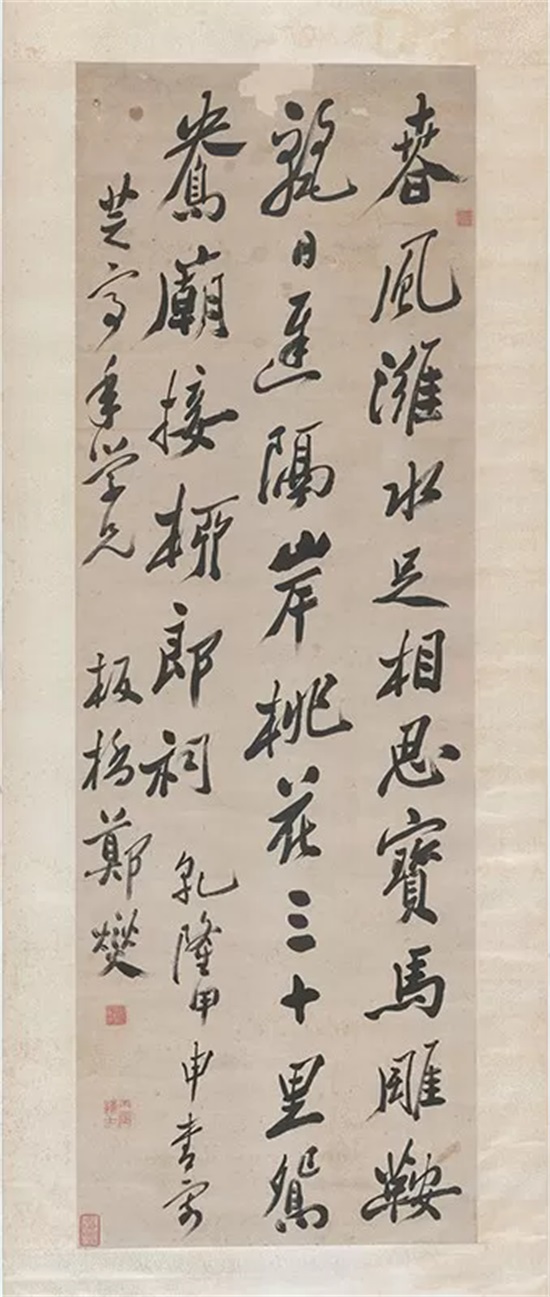 春風濰水足相思寶馬雕鞍
日遲隔岸桃花三十里鴛
鴦廟接柳郎祠 乾隆甲申書寄
芝亭年学兄 板橋鄭燮